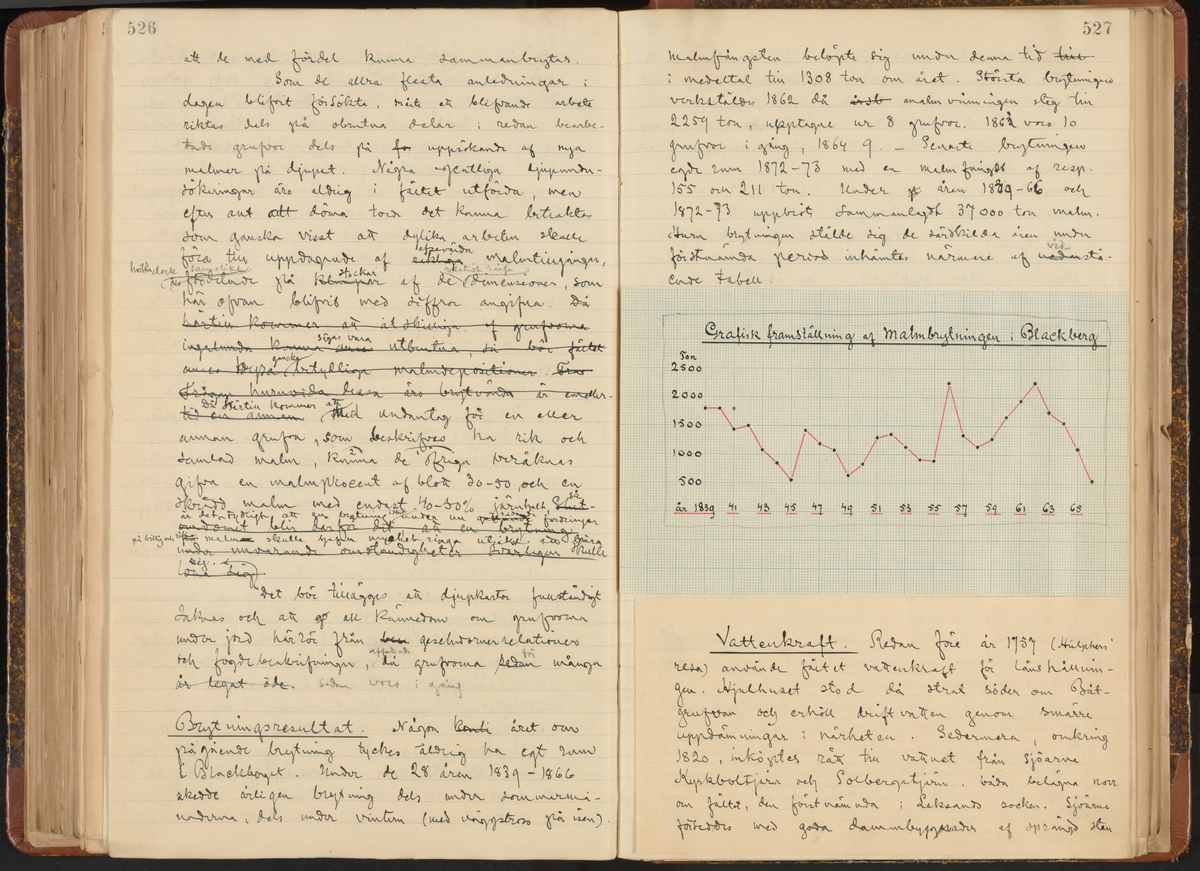 526
att de med fördel kunna sammanbrytas.
Som de allra flesta anledningar i
dagen blifvit försökta, måste ett blifvande arbete
riktas dels på obrutna delar i redan bearbe-
tade grufvor dels på för uppsökande af nya
malmer på djupet. Några egentliga djupunder-
sökningar äro aldrig i fältet utförda, men
efter allt att döma torde det kunna betraktas
som ganska visst att dylika arbeten skulle
föra till uppdagande af malmtillgångar,
fördelade på stockar af de dimensioner, som
här ofvan blifvit med siffror angifna. Då
härtill kommer att åtskilliga af grufvorna
ingalunda kunna sägas vara utbrutna, så bör fältet
anses äga ganska betydliga malmdepositioner.
Frågan huruvida dessa äro brytvärda är emeller-
tid en annan Då härtill kommer att Med undantag för en eller
annan grufva, som beskrifves ha rik och
samlad malm, kunna de öfriga beräknas
gifva en malmprocent af blott 30-50, och en
skrädd malm med endast 40-50% järnhalt
omdömet blir därför det att en brytning
under nuvarande omständigheter svårligen skulle
löna sig
Det bör tilläggas att djupkartor fullständigt
saknas och att all kännedom om grufvorna
under jord härrör från geschwornerrelationer
och fogdebeskrifningar, då grufvorna sedan många
år legat öde. sedan voro i gång
Brytningsresultat. Någon året om
pågående brytning tyckes aldrig ha egt rum
i Blackberget. Under de 28 åren 1839-1866
skedde årligen brytning dels under sommarmå-
naderna, dels under vintern (med uppstross på isen).
527
Malmfångsten belöpte sig under denna tid till
i medeltal till 1308 ton om året. Största brytningen
verkställdes 1862 då malmvinningen steg till
2259 ton, upptagne ur 8 grufvor. 1863 voro 10
grufvor i gång, 1864 9. – Senaste brytningen
egde rum 1872-73 med en malmfångst af resp.
155 och 211 ton. Under åren 1839-66 och
1872-73 uppbröts sammanlagdt 37000 ton malm.
Huru brytningen ställde sig de särskilda åren under
förstnämda period inhämtas närmare af vidstå-
ende tabell.
Grafisk framställning af Malmbrytningen i Blackberg
Ton
2500
2000
1500
1000
500
år 1839 41 43 45 47 49 51 53 55 57 59 61 63 65
Vattenkraft. Redan före år 1757 (Hülphers'
resa) använde fältet vattenkraft för länshållnin-
gen. Hjulhuset stod då strax söder om Båt-
grufvan och erhöll driftvatten genom smärre
uppdämningar i närheten. Sedermera, omkring
1820, inköptes rätt till vattnet från sjöarne
Kyrkboltjärn och Solbergstjärn, båda belägna norr
om fältet, den förstnämnda i Leksands socken. Sjöarne
förseddes med goda dammbyggnader af sprängd sten